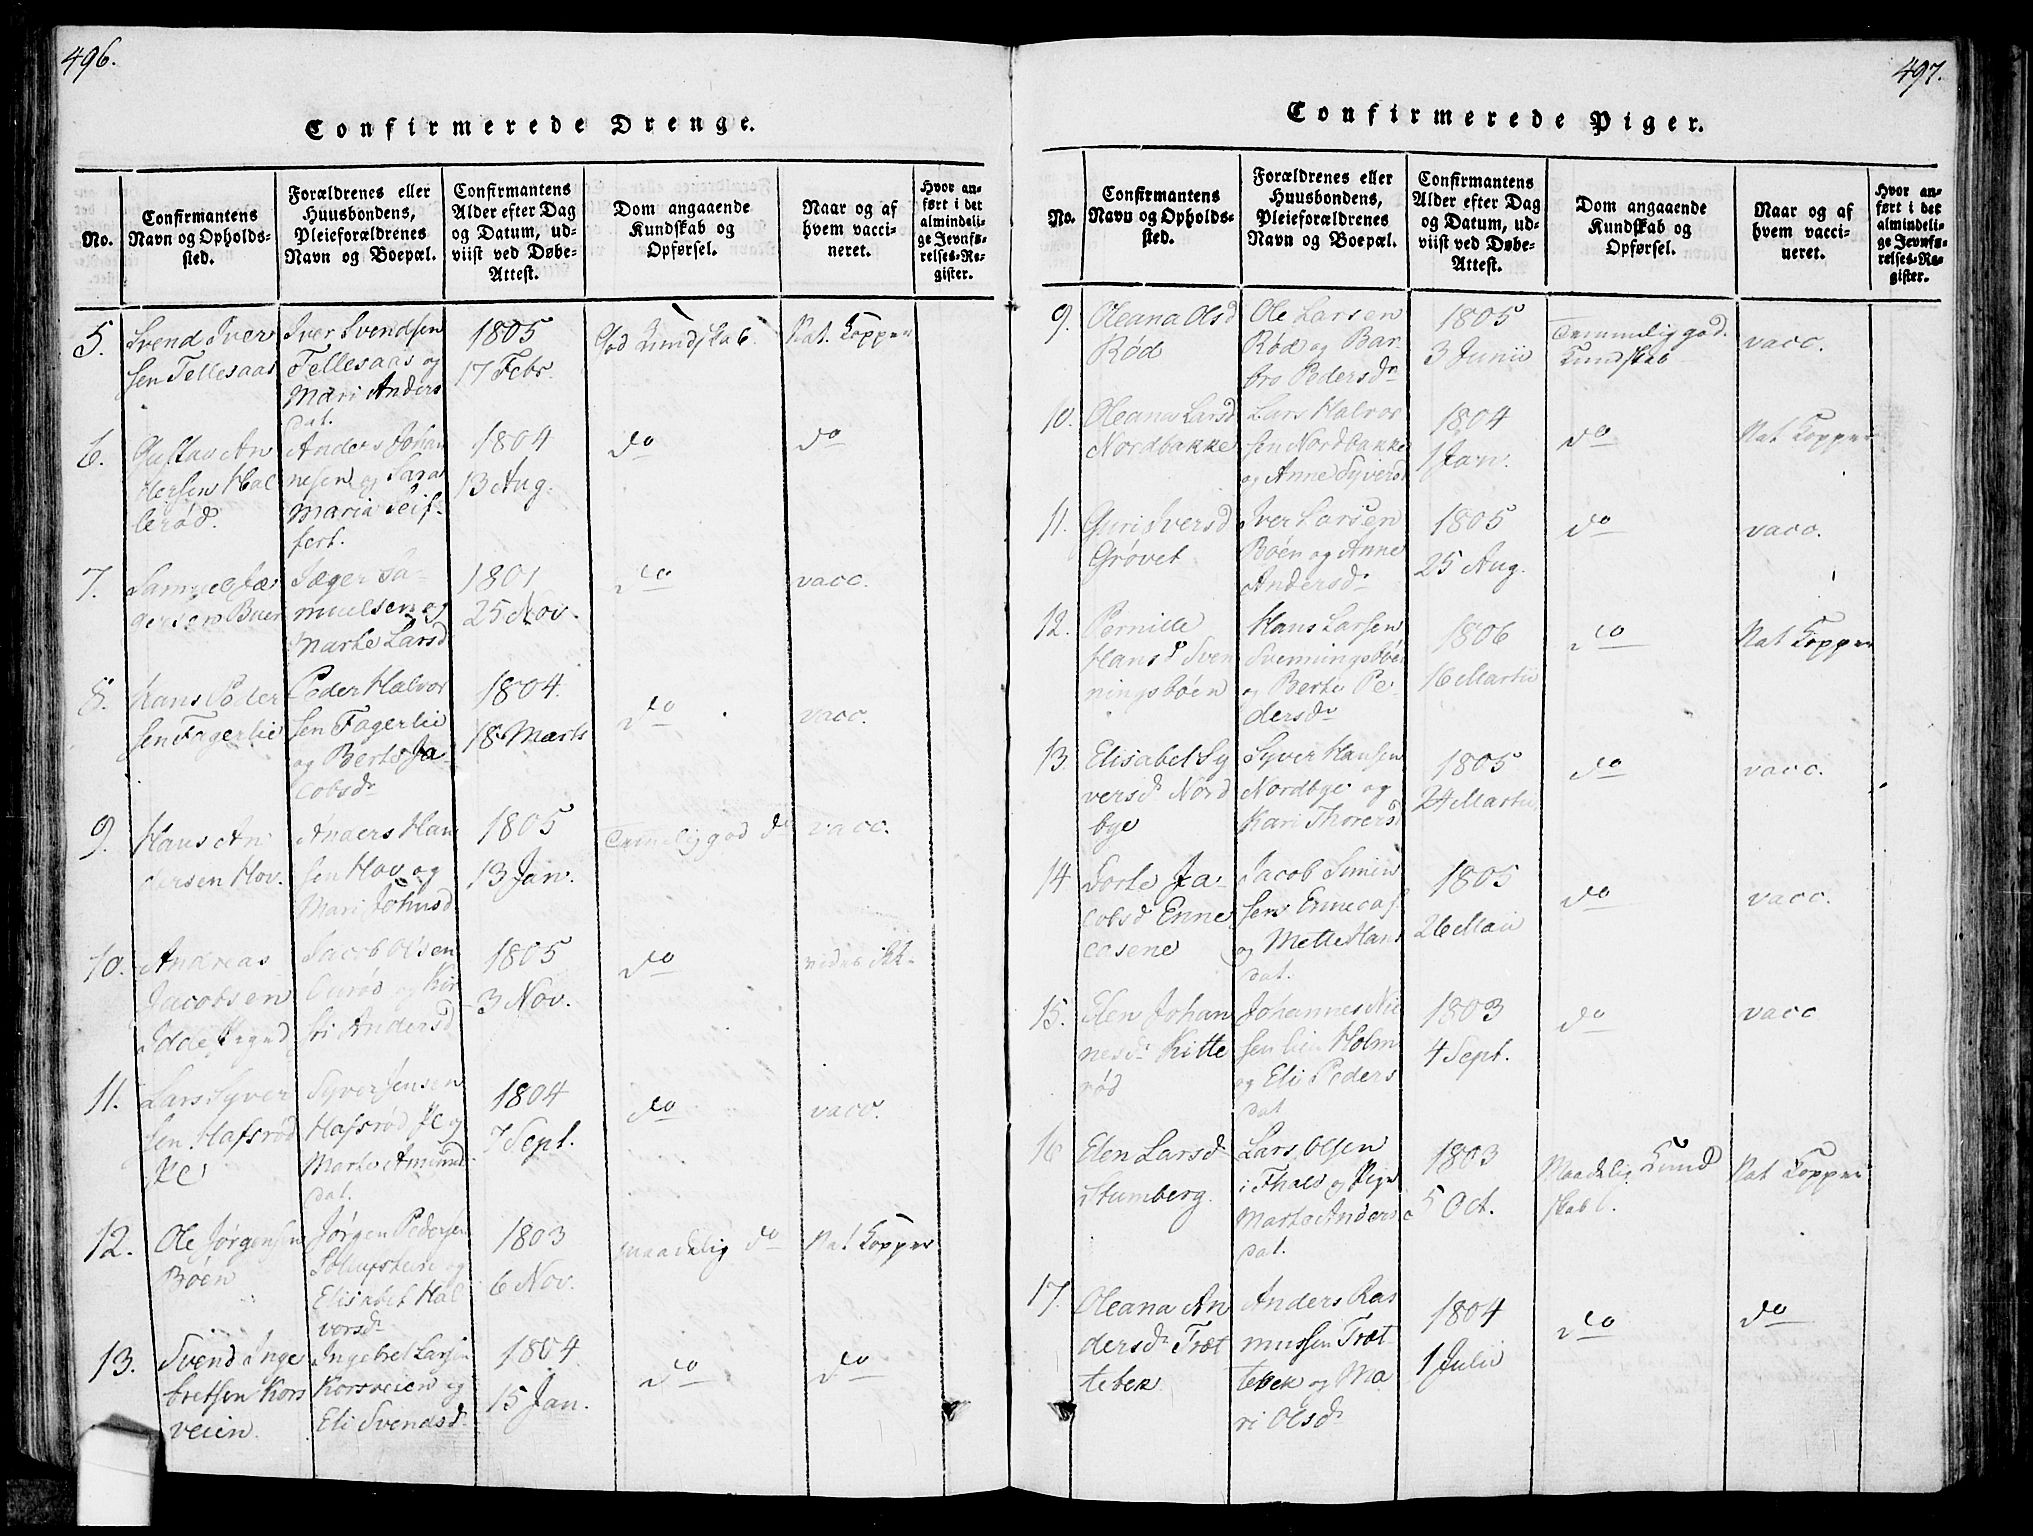 496.
Confirmerede Drenge.
No.
Confirmantens
Navn og Opholds-
sted.
Forældrenes eller
Huusbondens,
Pleieforældrenes
Navn og Boepæl.
Confirmantens
Alder efter Dag
og Datum, ud-
viist ved Døbe-
Attest.
Dom angaaende
Kundskab og
Opførsel.
Naar og af
hvem vacci-
neret.
Hvor an-
ført i det
almindeli-
ge Jevnfø-
relses-Re-
gister.
5.
Svend Iver
sen Tellesaas
Iver Svendsen
Tellesaas og
Mari Anders
dat.
1805
17 Febr.
God Kundskab
Nat. Kopper
6.
Gustav An
dersen Hal
lerød.
Anders Johan
nesen og Sara
Maria Seif-
fert.
1804
13 Aug.
do
do
7.
Samuel Jæ
gersen Buer
Jæger Sa-
muelsen og
Marte Larsd
1801
25 Nov.
do
vacc.
8.
Hans Peder
sen Fagerlie
Peder Halvor
sen Fagerlie
og Berte Ja-
cobsdr
1804.
18 Marts
do
vacc.
9.
Hans An
dersen Hov.
Anders Han
sen Hov og
Mari Johnsd.
1805
13 Jan.
Temelig god do
vacc.
10.
Andreas
Jacobsen
Idde Prgjd
Jacob Olsen
og Kir
sti Andersd
1805
3 Nov.
do
vides ikk-
11.
Lars Syver
sen Hafsrød
Pe
Syver Jensen
Hafsrød Pe og
Marte Amund
dat.
1804
7 Sept.
do
vacc.
12.
Ole Jørgensen
Böen
Jörgen Pedersen
og
Elisabet Hal
versdr
1803
6 Nov.
maadelig do
Nat Kopper
13.
Svend Inge
bretsen Kors
veien.
Ingebret Larsen
Korsveien og
Eli Svendsdr
1804
15 Jan.
do
do
497.
Confirmerede Piger.
No.
Confirmantens
Navn og Opholds-
sted.
Forældrenes eller
Huusbondens,
Pleieforældrenes
Navn og Boepæl.
Confirmantens
Alder efter Dag
og Datum, ud-
viist ved Døbe-
Attest.
Dom angaaende
Kundskab og
Opførsel.
Naar og af
hvem vacci-
neret.
Hvor an-
ført i det
almindeli-
ge Jevnfø-
relses-Re-
gister.
9.
Oleana Olsd
Rød
Ole Larsen
Rød og Bar-
bro Pedersdr
1805
3 Junii
Temmelig god.
Kundskab
vacc.
10.
Oleana Larsd
Nordbakke
Lars Halvor
sen Nordbakke
og Anne Syversd
1804
1 Jan.
do
Nat Kopper
11.
Guri Iversd
Grøvet
Iver Larsen
Böen og Anne
Andersdr
1805
25 Aug.
do
vacc.
12.
Pernille
Hansd Sven
ningsböen
Hans Larsen
Svenningsböen
og Berte Pe-
dersdr
1806
16 Martii
do
Nat Kopper
13.
Elisabet Sy
versdr Nord
bye
Syver Hansen
Nordbye og
Kari Thorersd
1805
24 Martii
do
vacc.
14
Dorte Ja-
cobsd Enne
casene
Jacob Simen
sen Ennecas.
og Mette Hans
dat.
1805
26 Maii
do
vacc.
15.
Elen Johan
nesdr Kitte
rød
Johannes Nil
sen Lien Holm
og Eli Peders
dat
1803
4 Sept.
do
vacc
16
Elen Larsdr
Stumberg.
Lars Olsen
i Thaes og Pige
Marte Anders
dat.
1803
5 Oct.
Maadelig Kund
skab.
Nat Kopper
17.
Oleana An
dersdr Træt
tebek
Anders Ras
mussen Træt
tebek og Ma
ri Olsdr
1804
1 Julii
do
do